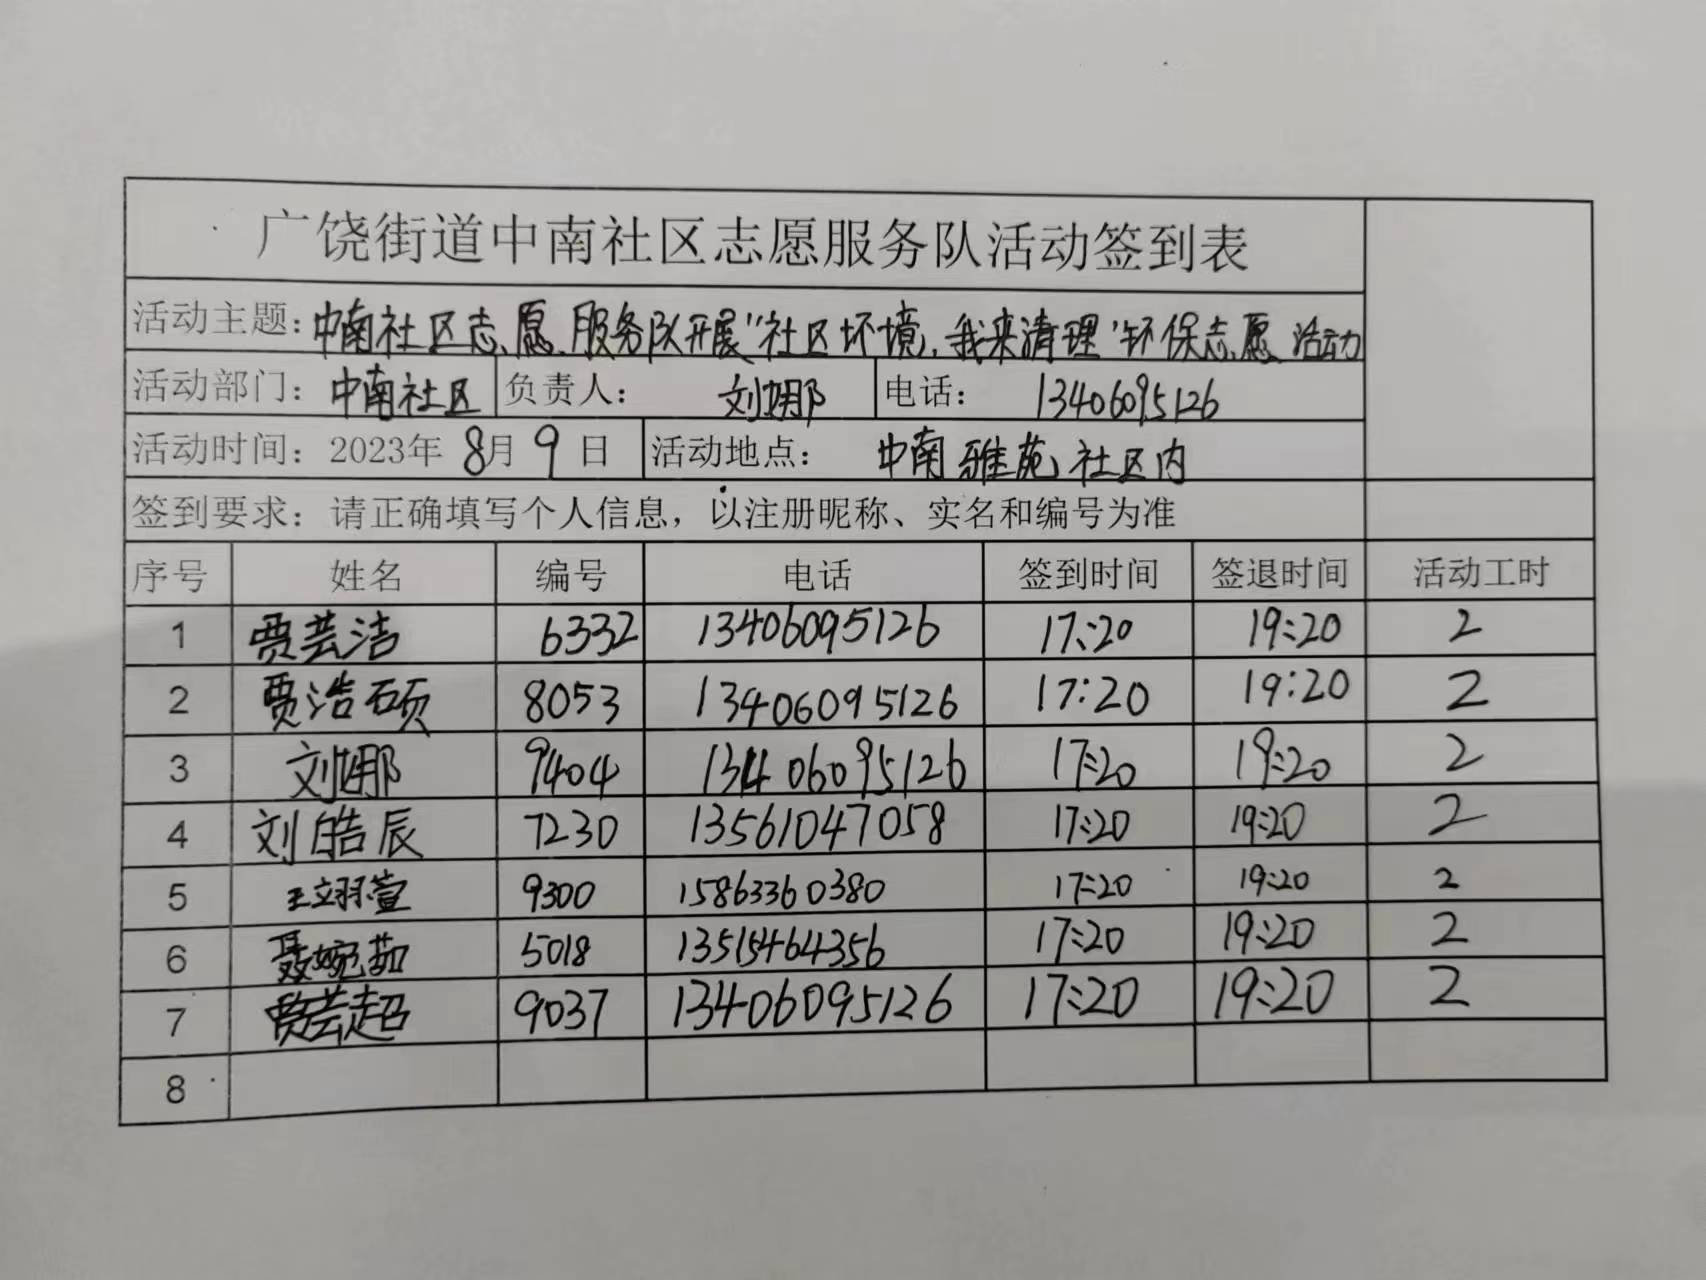 广饶街道中南社区志愿服务队活动签到表
活动主题：中南社区志愿服务队开展“社区环境，我来清理”环保志愿活动
活动部门：中南社区 负责人：刘娜 电话：13406095126
活动时间：2023年8月9日 活动地点：中南雅苑社区内
签到要求：请正确填写个人信息，以注册昵称、实名和编号为准
序号 姓名 编号 电话 签到时间 签退时间 活动工时
1 贾芸洁 6332 13406095126 17:20 19:20 2
2 贾浩硕 8053 13406095126 17:20 19:20 2
3 刘娜 9404 13406095126 17:20 19:20 2
4 刘皓辰 7230 13561047058 17:20 19:20 2
5 王翊萱 9300 15863360380 17:20 19:20 2
6 聂婉茹 5018 13515464356 17:20 19:20 2
7 贾芸超 9037 13406095126 17:20 19:20 2
8